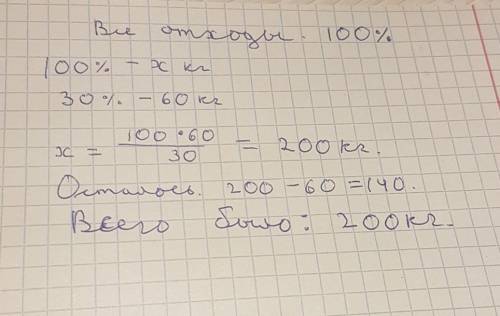 Все отходы. 100%
100% - x кг
30% - 60 кг
x = 100 • 60 / 30 = 200 кг.
Осталось. 200 - 60 = 140.
Всего было: 200 кг.